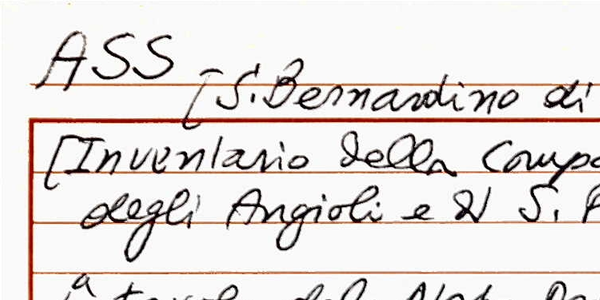 ASS
[S. Bernardino di
[Inventario della Comp
degli Angioli e di S.
del